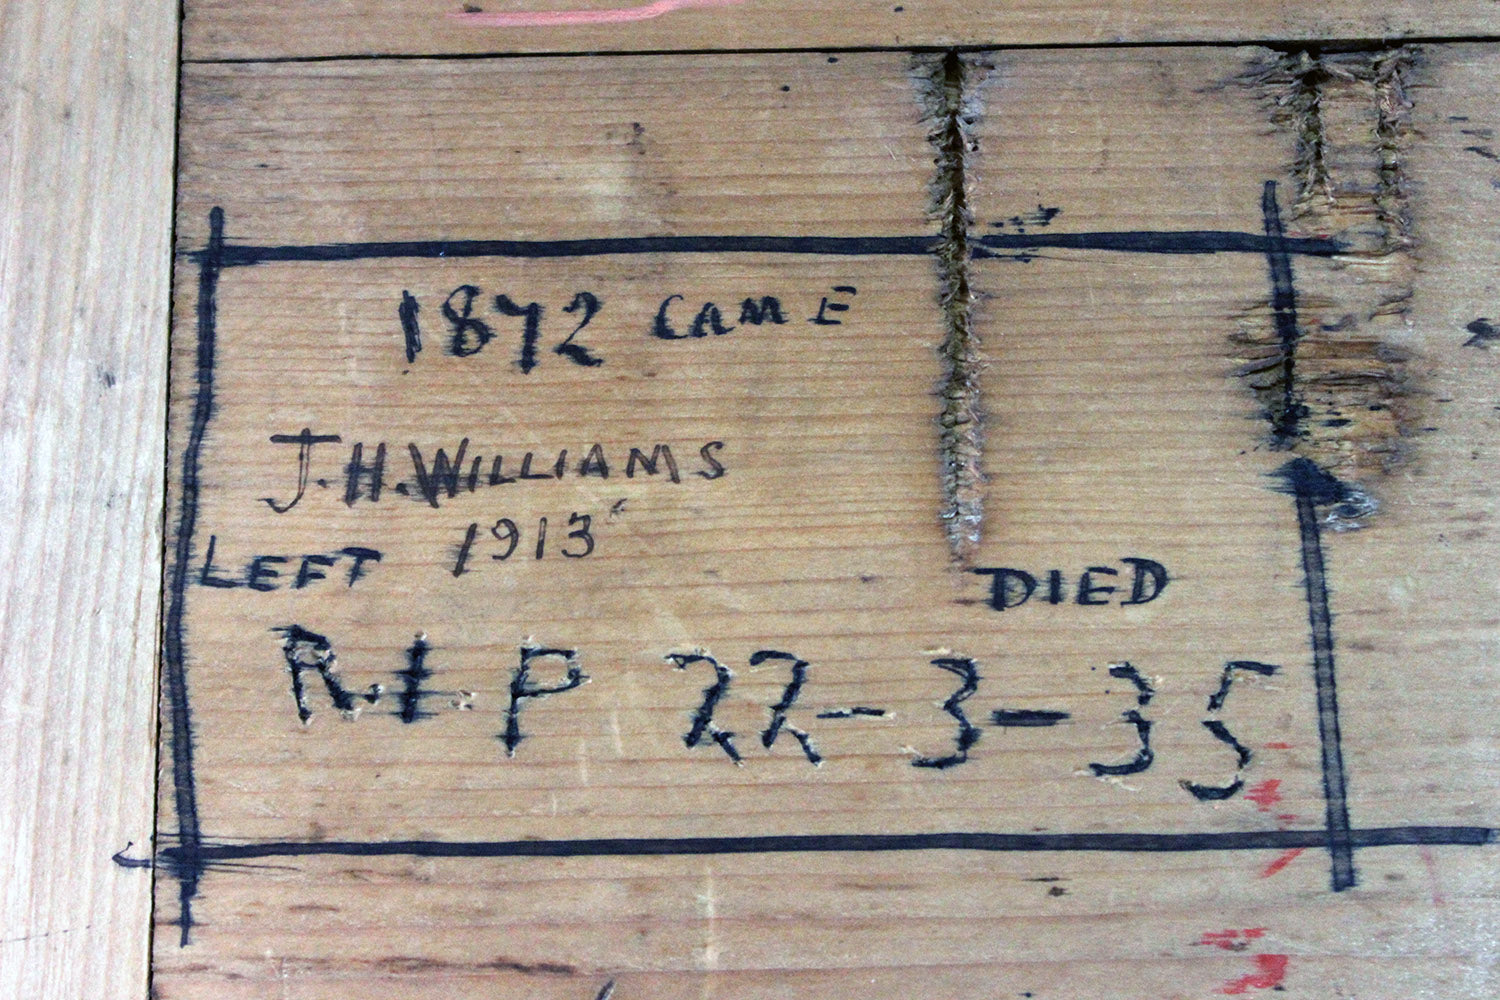 1872 CAME
J.H.WILLIAMS
LEFT 1913
DIED
R.I.P 22-3-35